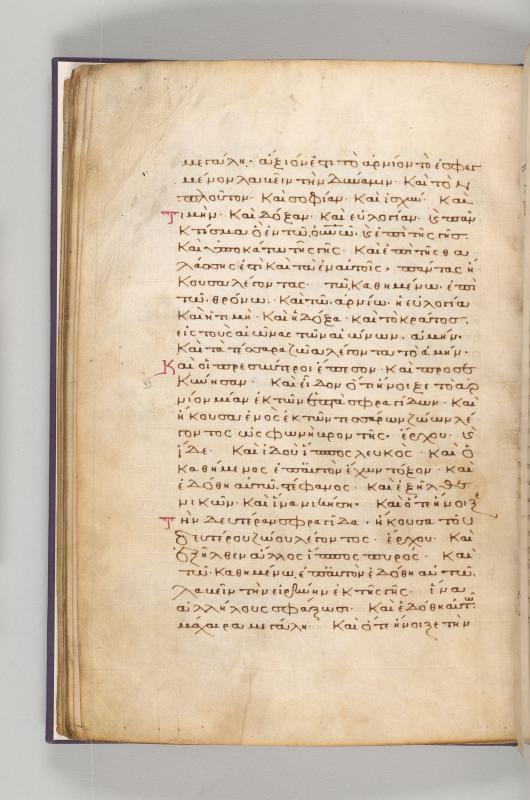 μεγάλη· ἄξιόν ἐστι τὸ ἀρνίον τὸ ἐσφαγ
μένον λαβεῖν τὴν δύναμιν· Καὶ τὸν
πλοῦτον· Καὶ σοφίαν· Καὶ ἰσχύν· Καὶ
Τιμὴν· Καὶ δόξαν· Καὶ εὐλογίαν· καὶ πᾶν
Κτίσμα ὃ ἐν τῶ οὐνῶ, καὶ ἐπὶ τῆς γῆς·
Καὶ ὑποκάτω τῆς γῆς· Καὶ ἐπὶ τῆς θα
λάσσης ἐστὶ Καὶ τὰ ἐν αὐτοῖς, πάντας ἤ
Κουσα λέγοντας· τῶ Καθημένω ἐπὶ
τῶ θρόνω· Καὶ τῶ ἀρνίω· ἡ εὐλογία
Καὶ ἡ τιμὴ· Καὶ ἡ δόξα· Καὶ τὸ κράτος·
εἰς τοὺς αἰῶνας τῶν αἰώνων, ἀμήν·
Καὶ τὰ τέσσαρα ζῶα λέγοντα τὸ ἀμήν·
Καὶ οἱ πρεσβύτεροι ἔπεσον· Καὶ προσε
Κύνησαν· Καὶ εἶδον ὅτι ἤνοιξε τὸ ἀρ
νίον μίαν ἐκ τῶν ἑπτὰ σφραγίδων· Καὶ
ἤκουσα ἑνὸς ἐκ τῶν τεσσάρων ζώων λέ
γοντος ὡς φωνὴ βροντῆς· ἔρχου· καὶ
ἴδε· Καὶ ἰδοὺ ἵππος λευκὸς· Καὶ ὁ
Καθήμενος ἐπ' αὐτὸν ἔχων τόξον· Καὶ
ἐδόθη αὐτῶ στέφανος· Καὶ ἐξῆλθε
νικῶν· Καὶ ἵνα νικήση· Καὶ ὅτε ἤνοιξε
Τὴν δευτέραν σφραγίδα· ἤκουσα τοῦ
δευτέρου ζώου λέγοντος· ἔρχου· Καὶ
ἐξῆλθεν ἄλλος ἵππος πυρός· Καὶ
τῶ Καθημένω ἐπ' αὐτὸν ἐδόθη αὐτῶ
λαβεῖν τὴν εἰρήνην ἐκ τῆς γῆς· ἵνα
ἀλλήλους σφάξωσι· Καὶ ἐδόθη αὐτῶ
μάχαιρα μεγάλη· Καὶ ὅτε ἤνοιξε τὴν